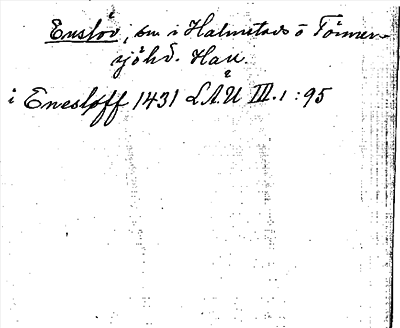 Enslöv, sn i Halmstads o Tönner-
sjöhd. Hall.
i Enesløff 1431 LÅU III.1:95